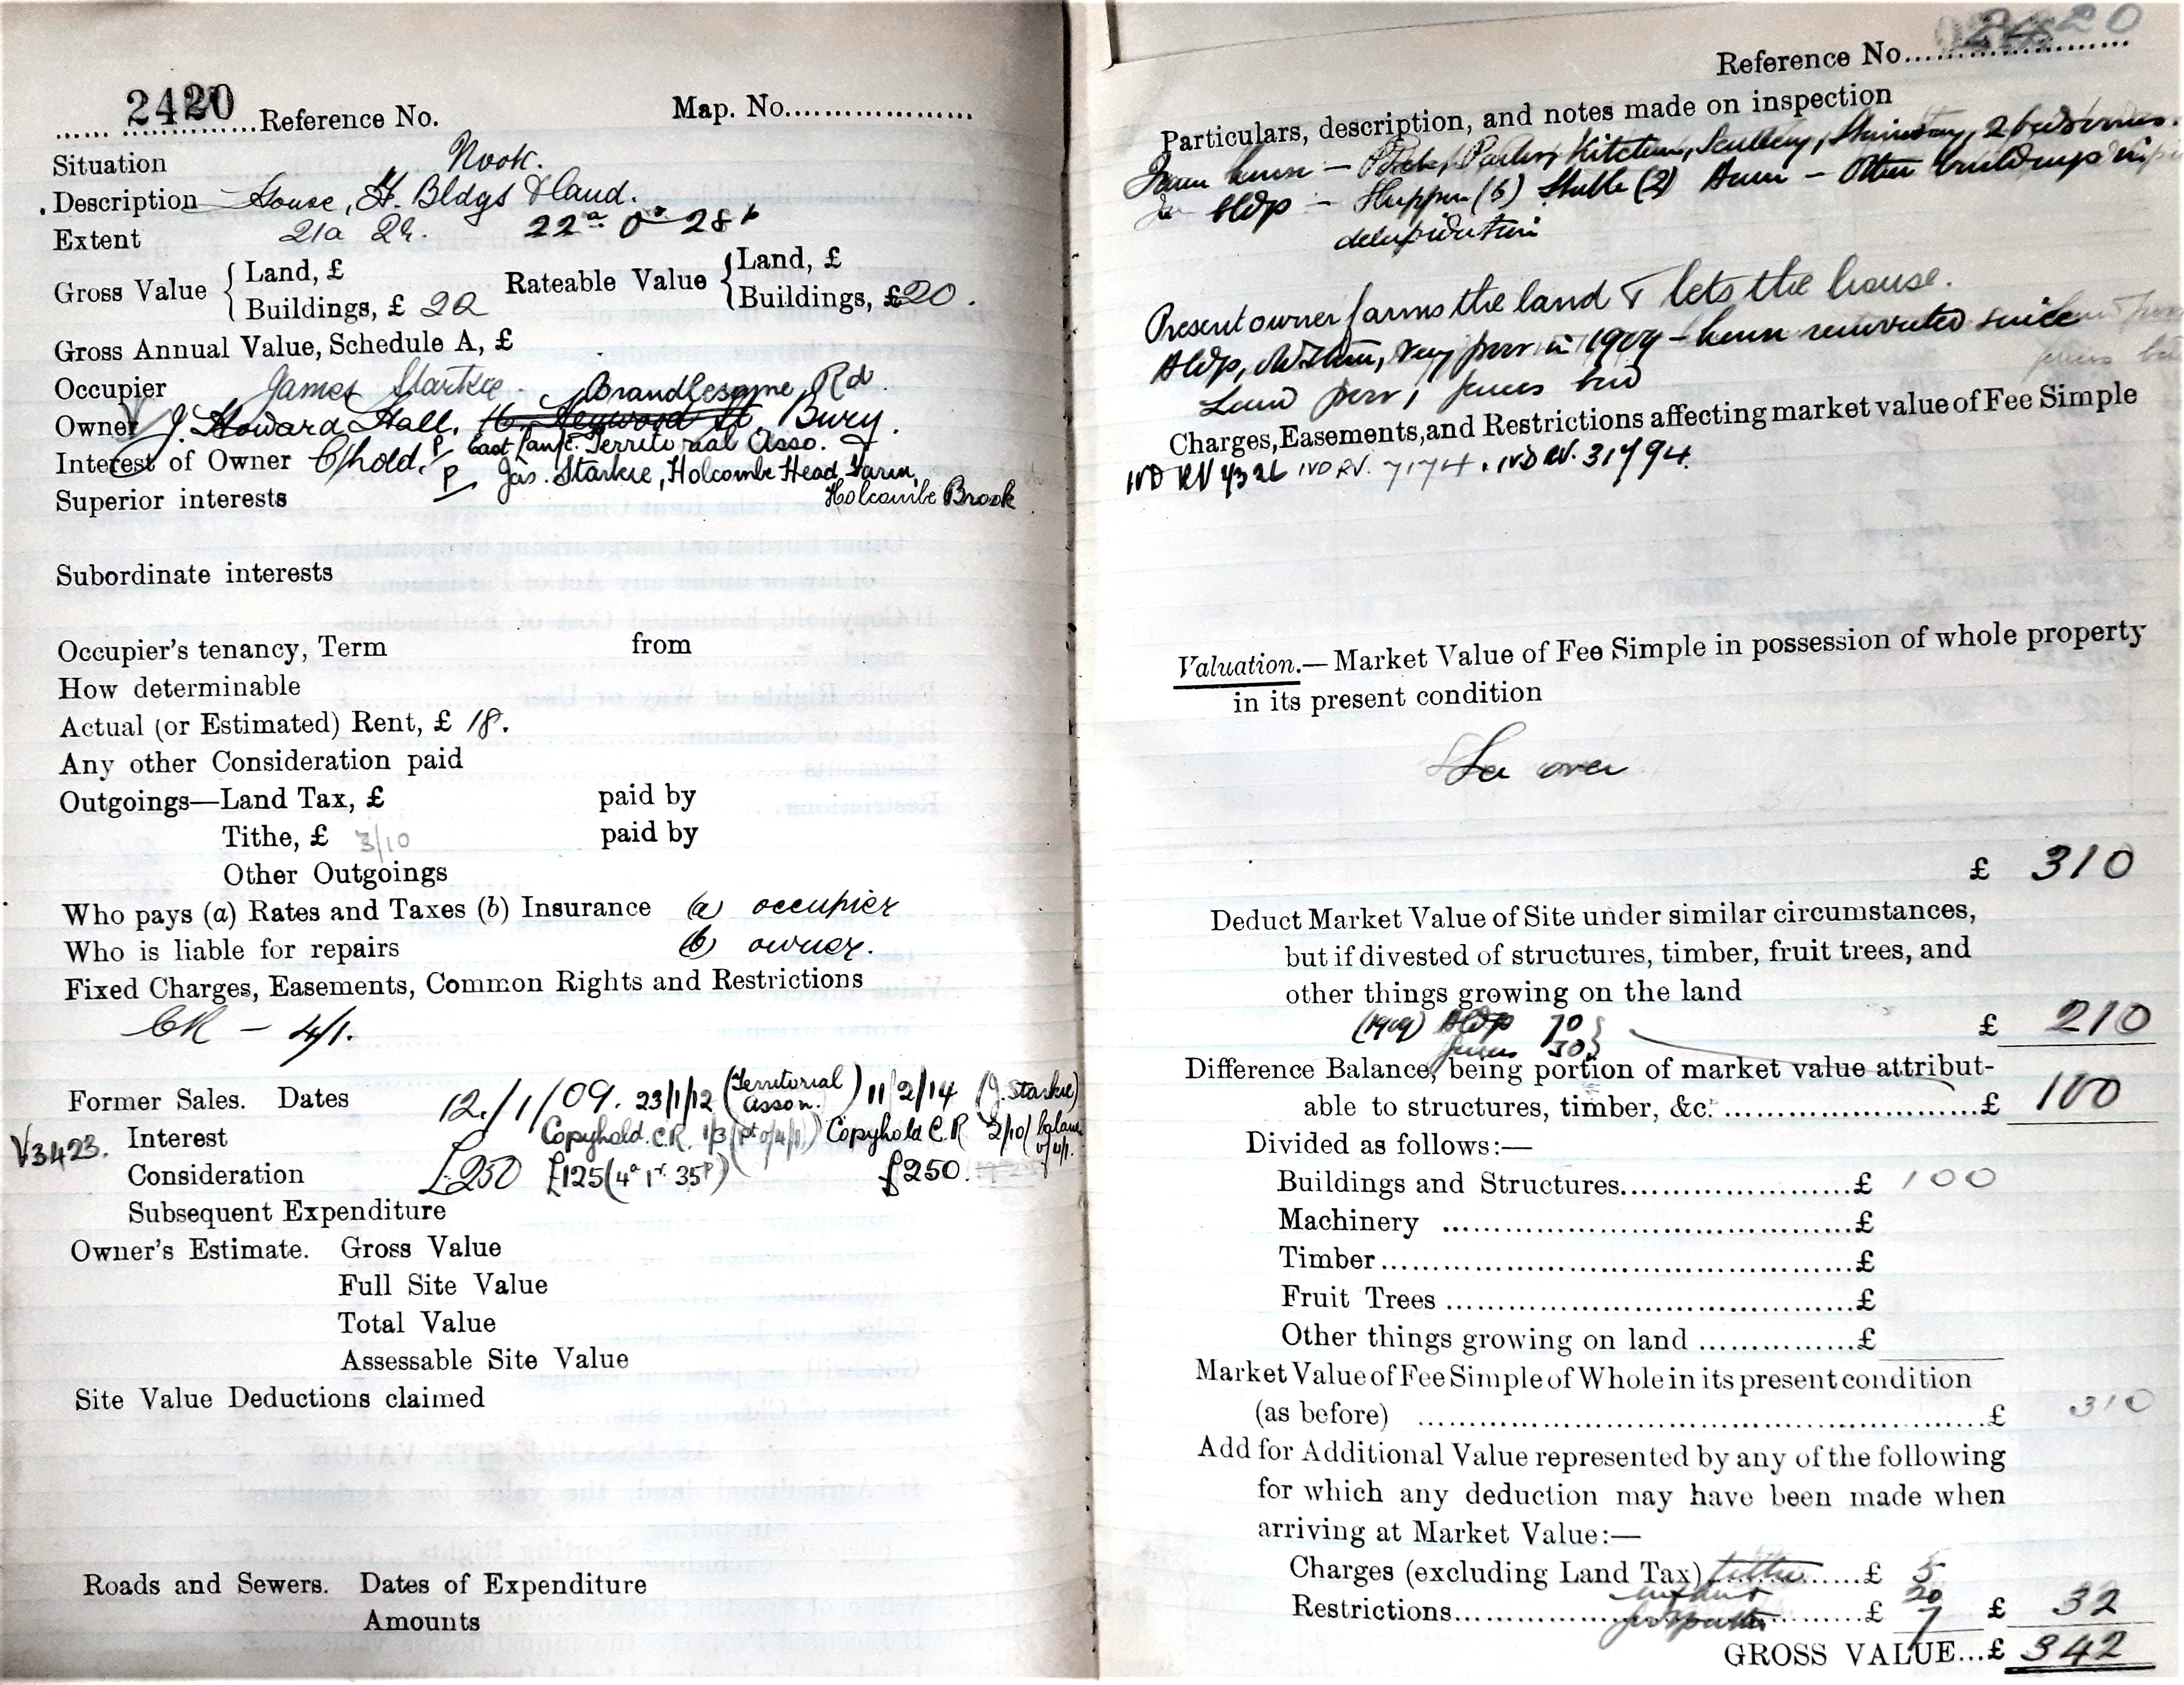 2420 Reference No. Map. No.
Situation Nook.
Description House, F. Bldgs & land.
Extent 21a 2r. 22a 0r 28p
Gross Value { Land, £ Rateable Value { Land, £
Buildings, £ 22 Buildings, £20.
Gross Annual Value, Schedule A, £
Occupier James Starkie. Brandlesome Rd.
Owner J. Howard Hall, 16 Heywood St. Bury.
East Lanc. Territorial Asso.
Interest of Owner C/hold. P
P Jas. Starkie, Holcombe Head Farm,
Superior interests Holcombe Brook
Subordinate interests
Occupier's tenancy, Term from
How determinable
Actual (or Estimated) Rent, £ 18.
Any other Consideration paid
Outgoings—Land Tax, £ paid by
Tithe, £ 3/10 paid by
Other Outgoings
Who pays (a) Rates and Taxes (b) Insurance (a) occupier
Who is liable for repairs (b) owner.
Fixed Charges, Easements, Common Rights and Restrictions
CR — 4/1.
Former Sales. Dates 12/1/09. 23/1/12 (Territorial Asson.) 11/2/14 (J. Starkie)
V3423. Interest Copyhold. C.R. 1/3 (pt of 4/1) Copyhold C.R 2/10 (balance of 4/1.
Consideration £250 £125 (4a 1r 35p) £250.
Subsequent Expenditure
Owner's Estimate. Gross Value
Full Site Value
Total Value
Assessable Site Value
Site Value Deductions claimed
Roads and Sewers. Dates of Expenditure
Amounts
Reference No. 2420
Particulars, description, and notes made on inspection
Farm house — Parlor, Kitchen, Scullery, 2 bedrooms.
Bldgs — Shippon (5) Stable (2) Barn — Other buildings in
delapidation
Present owner farms the land & lets the house.
Bldgs, very poor in 1909 — house renovated since
Land poor, fences bad
Charges, Easements, and Restrictions affecting market value of Fee Simple
IVD RV 4326 IVD RV. 7174. IVD RV. 31794.
Valuation.— Market Value of Fee Simple in possession of whole property
in its present condition
See over
£ 310
Deduct Market Value of Site under similar circumstances,
but if divested of structures, timber, fruit trees, and
other things growing on the land
(1909) Bldgs 70 } £ 210
fences 30 }
Difference Balance, being portion of market value attribut-
able to structures, timber, &c. £ 100
Divided as follows:—
Buildings and Structures £ 100
Machinery £
Timber £
Fruit Trees £
Other things growing on land £
Market Value of Fee Simple of Whole in its present condition
(as before) £ 310
Add for Additional Value represented by any of the following
for which any deduction may have been made when
arriving at Market Value:—
Charges (excluding Land Tax) tithe £ 5
20
Restrictions footpaths £ 7 £ 32
GROSS VALUE...£ 342